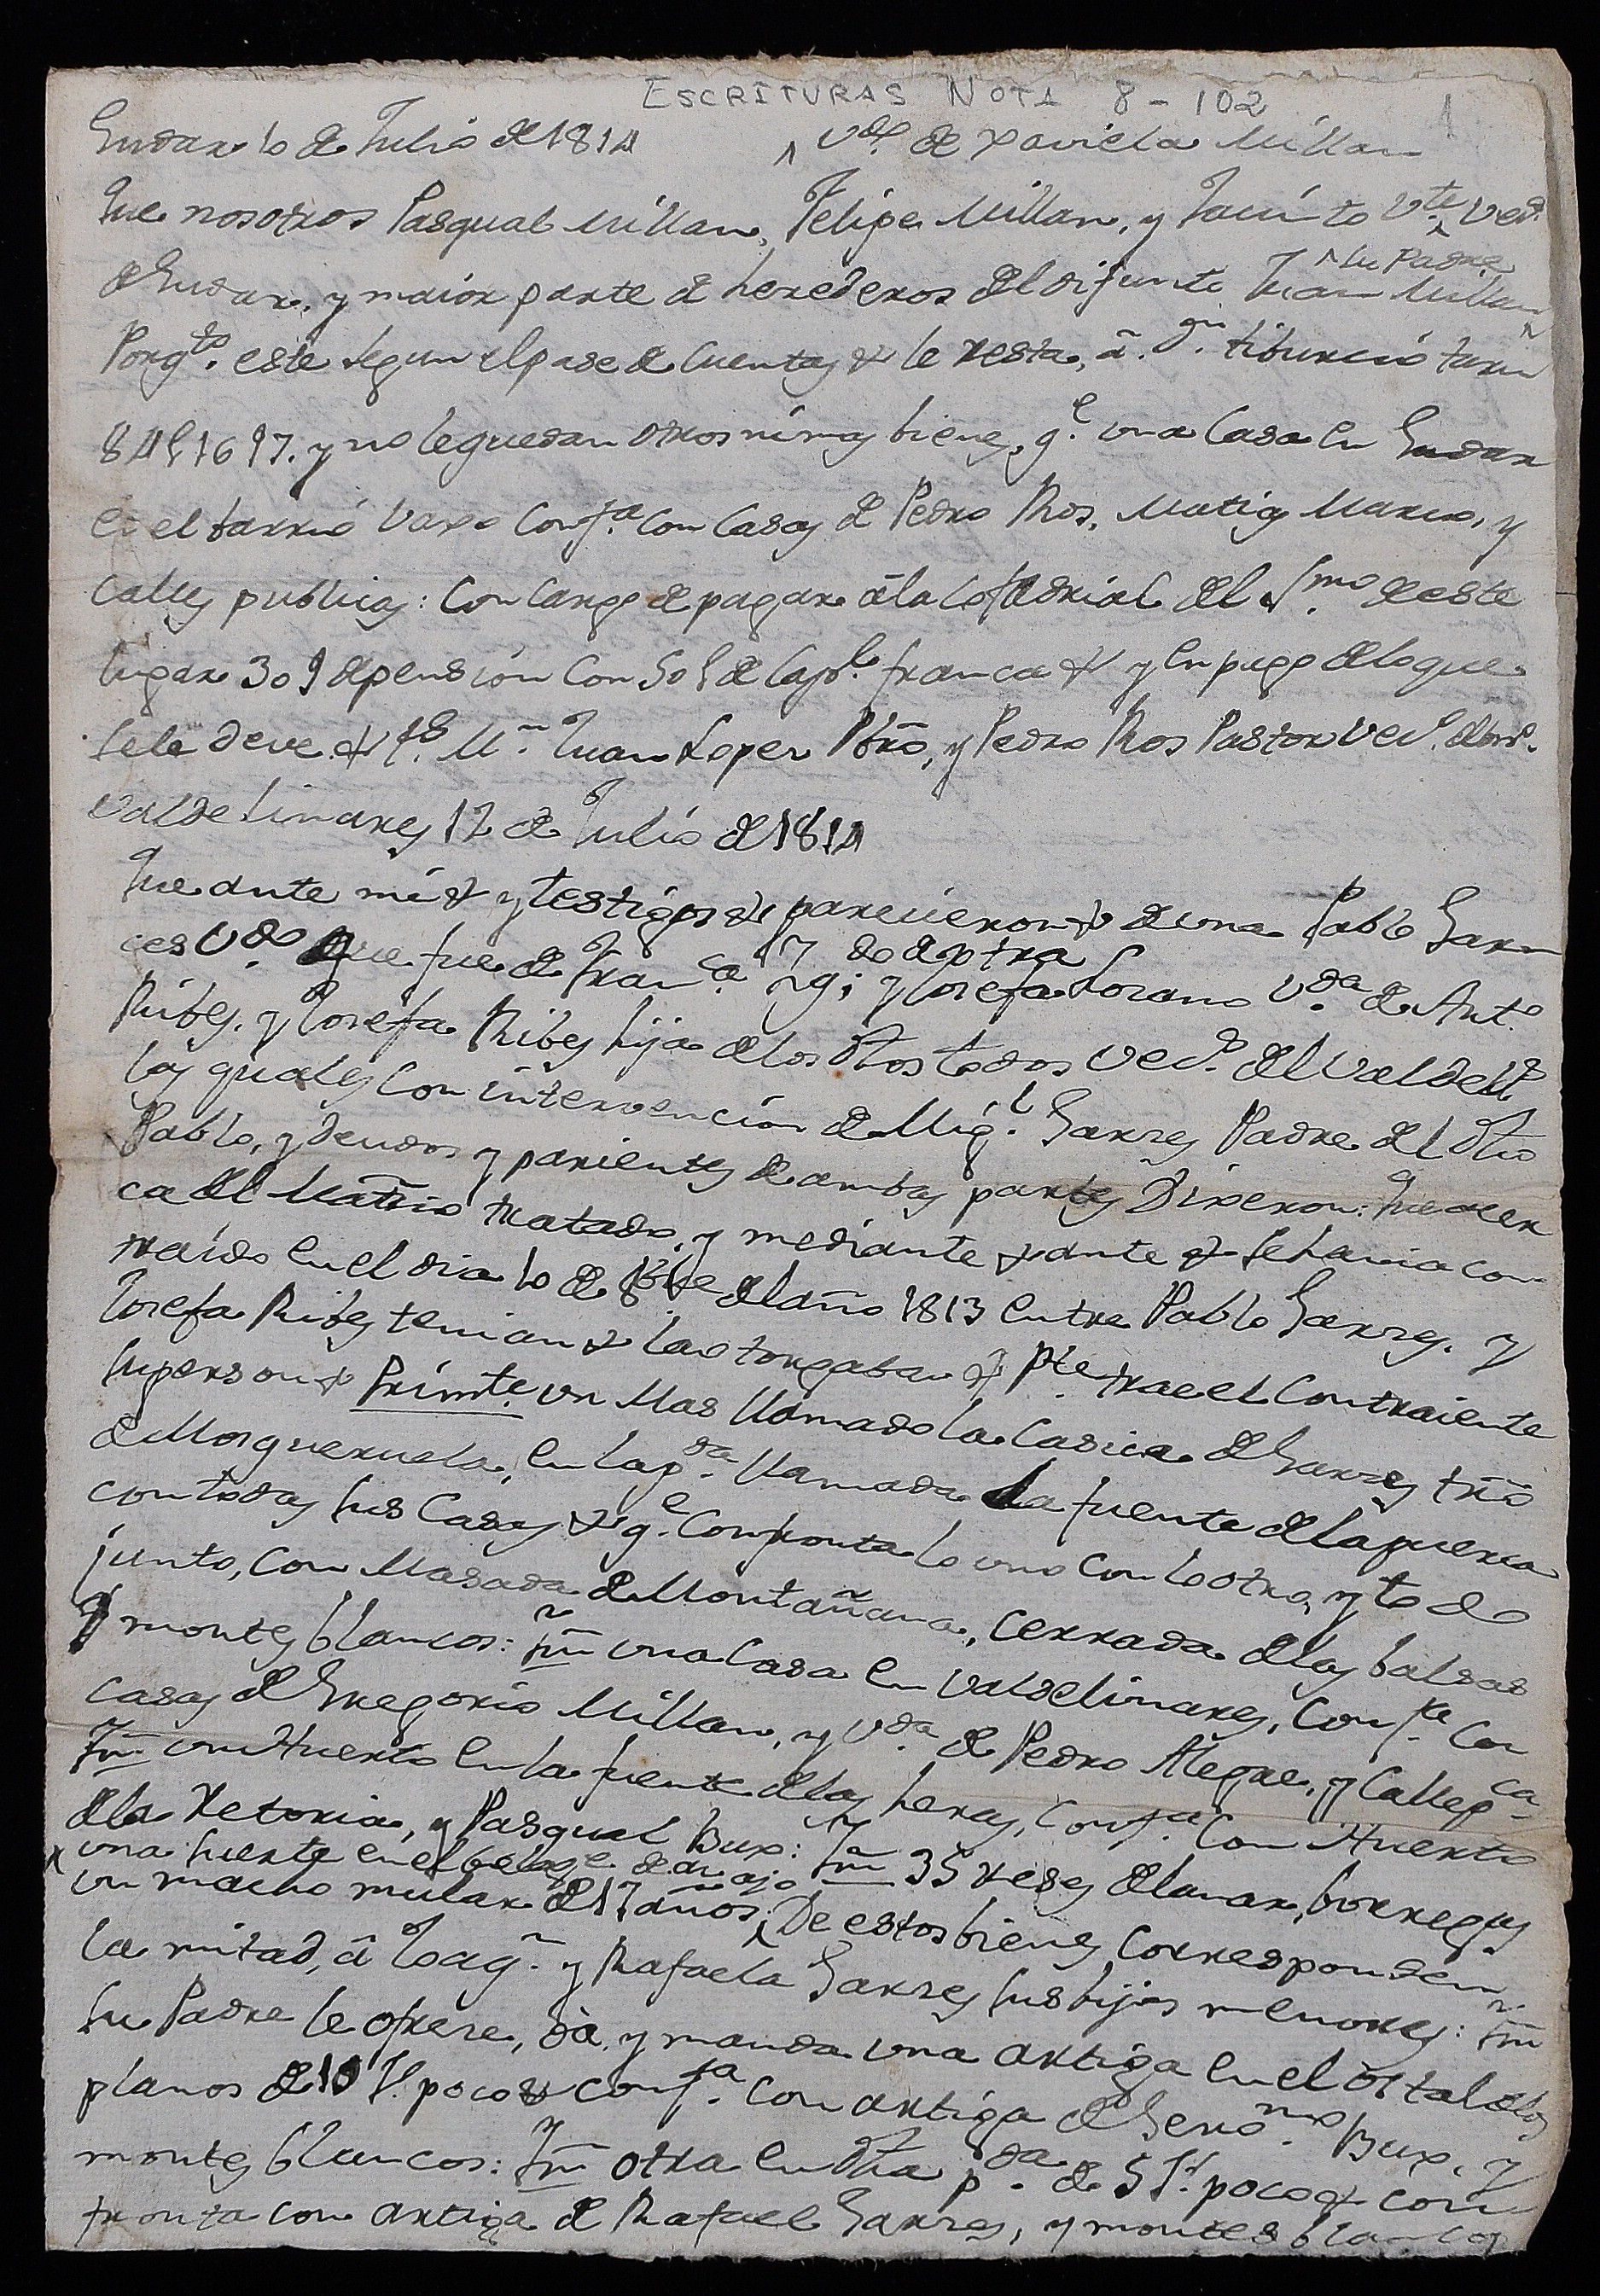 ESCRITURAS NOTA 8-102
1
Gudar 10 de Julio de 1814 ^ Vdo. de Xaviela Millan
Que nosotros Pasqual Millan, Felipe Millan, y Jacinto Vte. ^ Vecs.
de Gudar, y maior parte de herederos del difunto Juan Millan ^ su Padre
Porqto. este segun el pase de cuentas & le resta, à Dn. tiburcio tarin
84 16 97. y no le quedan otros ni mas bienes, qe. una Casa en Gudar
en el barrio vaxo Confta. con Casas de Pedro Ros, Matias Marco, y
Calles publicas: Con cargo de pagar à la Cofadria del Smo. de este
lugar 30 9 de pension con 50 de Capl. franca & y en pago de lo que
se le deve & ts. Mn. Juan Loper Pbro, y Pedro Ros Pastor Vecs.
Valdelinares 12 de Julio de 1814
Que ante mi & y testigos & parecieron & de una Pablo Garn
ces Vdo. que fue de Franca. y de otra Josefa Lorano Vda. de Anto.
Ribes, y Josefa Ribes hija de los dtos todos Vecs. de Valdels.
las quales con intervencion de Migl. Garzes Padre del dto
Pablo, y deudos y parientes de ambas partes Dixeron: Que acer
ca del Matrio tratado, y mediante & ante & se havia con
traido en el dia 10 de 8bre del año 1813 entre Pablo Garzes, y
Josefa Ribes tenian & las otorgaban & Pte. trae el Contraiente
su person & Primte. un Mas llamado la Casica de Garzes trño
de Mosqueruela, en la pda. llamada la fuente de la puerca
con todas sus Casas & qe. Confronta lo uno con lo otro, y todo
junto, con Masada de Montañana, cerrada de las balsas
y montes blancos: Itm una Casa en Valdelinares, Confta. con
casas de Gregorio Millan, y Vda. de Pedro Alegre, y Calle pca.
Itm un Huerto en la fuente de las heras, Confta. Con Huerto
de la Retoria, y Pasqual Bux: Itm 35 reses de lanar, borregas
^ una suerte en el
un macho mular de 17 años, ^ De estos bienes corresponden
la mitad, â Joaqn. y Rafaela Garzes sus hijos menores: Itm
su Padre le ofrese, dà, y manda una artiga en el ostal de los
planos de 10 J. poco & confta. con artiga de Geromo. Bux, y
montes blancos: Itm otra en dta pda. de 5 J. poco & con
fronta con artiga de Rafael Garzes, y montes blancos